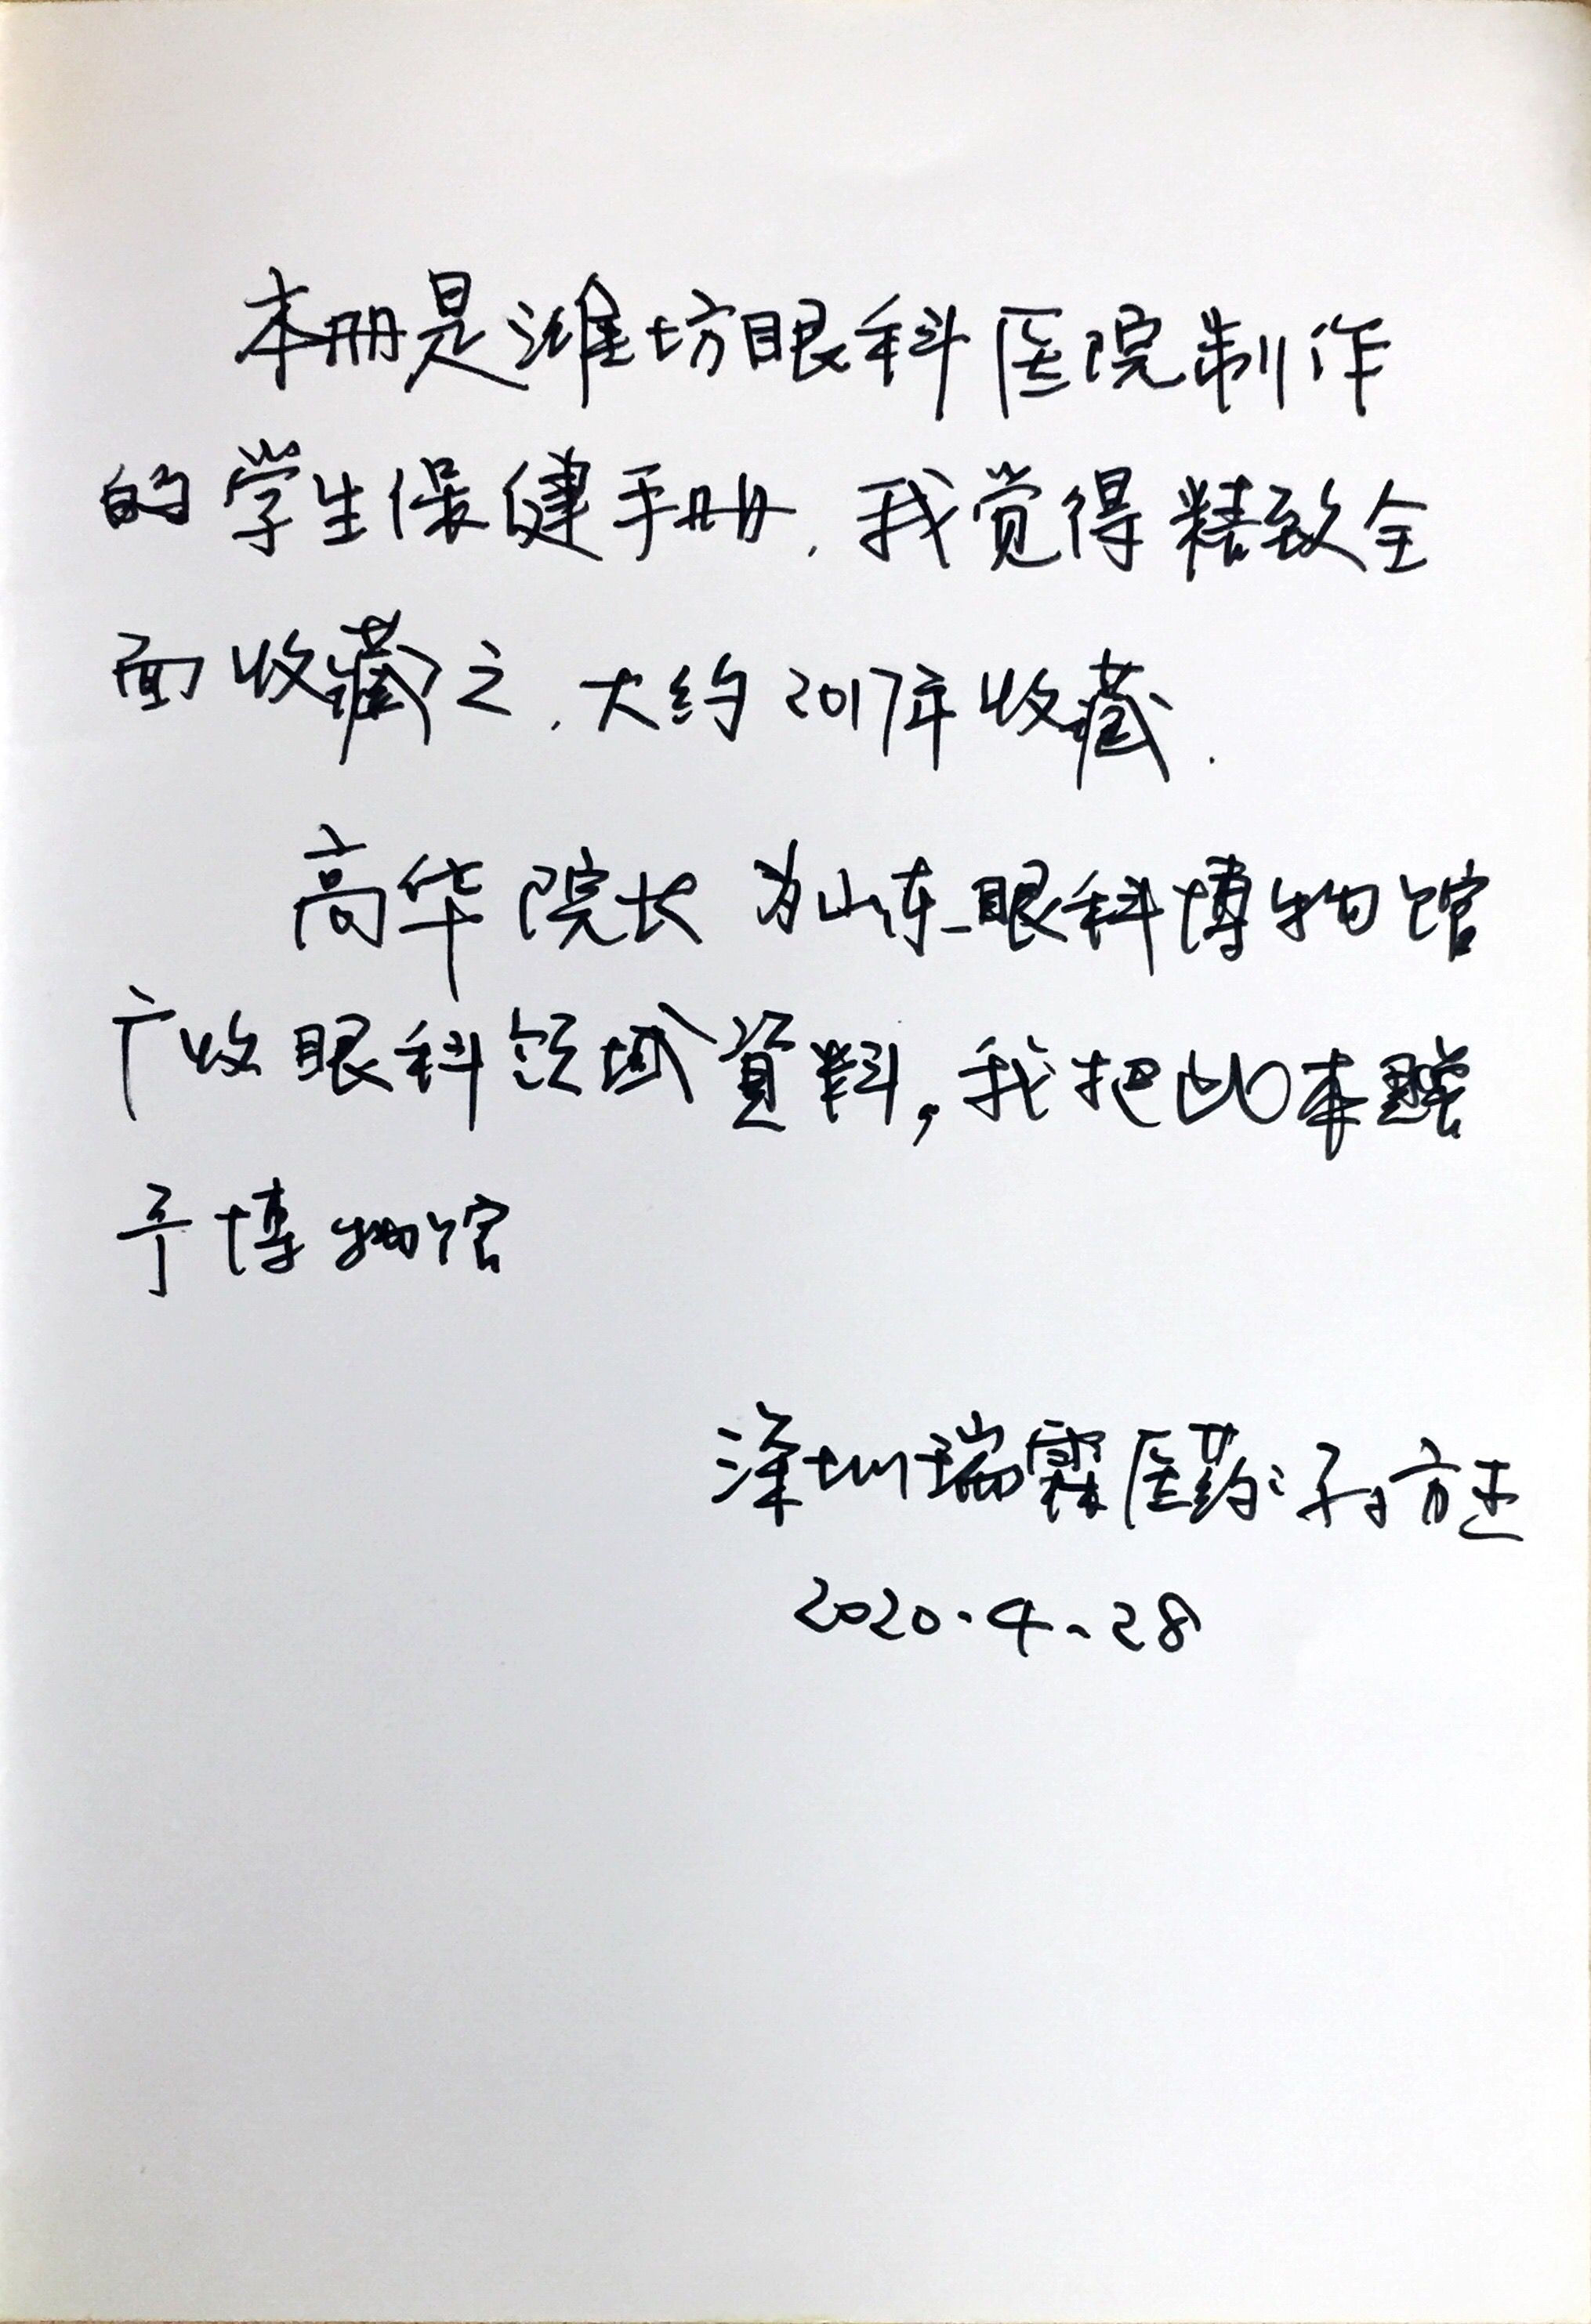 本册是潍坊眼科医院制作
的学生保健手册,我觉得精致全
面收藏之,大约2017年收藏.
高华院长为山东眼科博物馆
广收眼科领域資料,我把此本赠
予博物馆
深圳瑞霖医药:孙方
2020.4.28